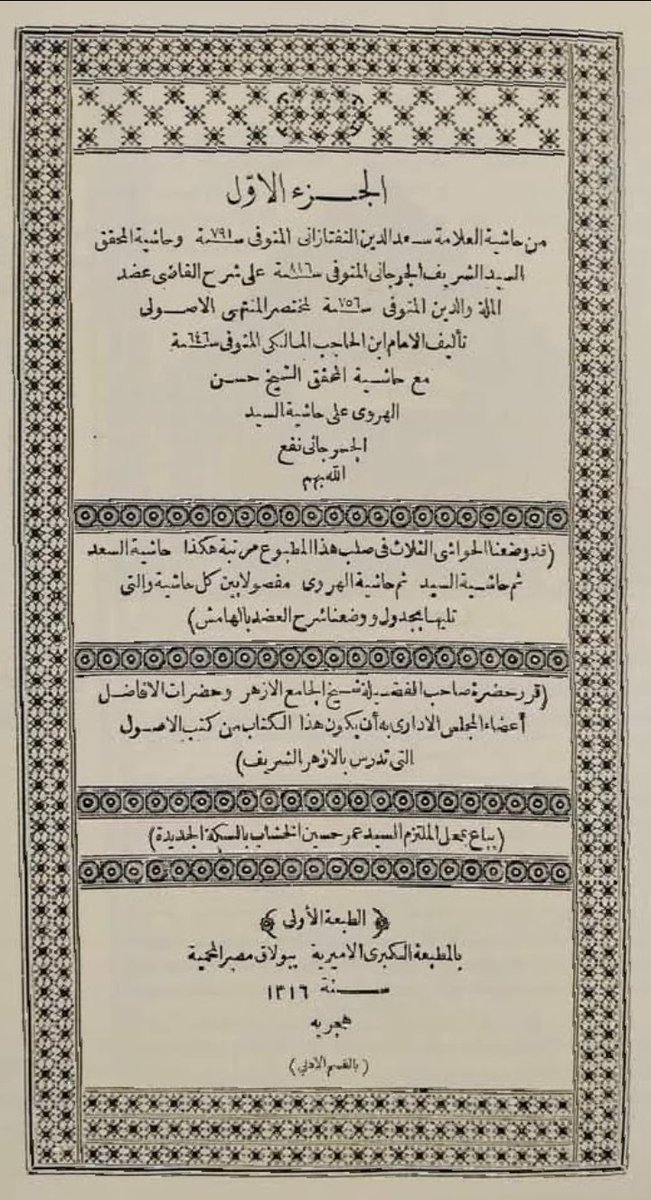 الجزء الاول
من حاشية العلامة سعد الدين التفتازانى المتوفى سنة ٧٩١ وحاشية المحقق
السيد الشريف الجرجانى المتوفى سنة ٨١٦ على شرح القاضى عضد
الملة والدين المتوفى سنة ٧٥٦ لمختصر المنتهى الاصولى
تأليف الامام ابن الحاجب المالكى المتوفى سنة ٦٤٦
مع حاشية المحقق الشيخ حسن
الهروى على حاشية السيد
الجرجانى نفع
الله بهم
(قد وضعنا الحواشى الثلاث فى صلب هذا المطبوع مرتبة هكذا حاشية السعد
ثم حاشية السيد ثم حاشية الهروى مفصولا بين كل حاشية والتى
تليها بجدول ووضعنا شرح العضد بالهامش)
(قرر حضرة صاحب الفضيلة شيخ الجامع الازهر وحضرات الافاضل
أعضاء المجلس الادارى به أن يكون هذا الكتاب من كتب الاصول
التى تدرس بالازهر الشريف)
(يباع بمحل الملتزم السيد عمر حسين الخشاب بالسكة الجديدة)
﴿الطبعة الأولى﴾
بالمطبعة الكبرى الاميرية ببولاق مصر المحمية
سنة ١٣١٦
هجريه
(بالقسم الادبي)